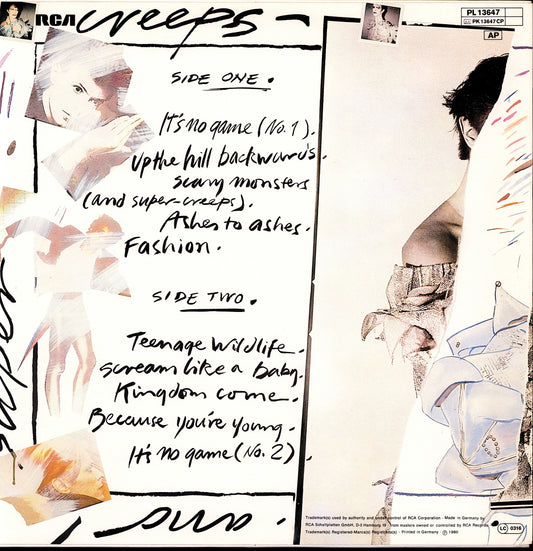 RCA creeps
PL 13647
PK 13647 CP
AP
SIDE ONE.
It's no game (No. 1).
Up the hill backwards.
scary monsters
(and super-creeps).
Ashes to ashes.
Fashion.
SIDE TWO.
Teenage Wildlife.
scream like a baby.
Kingdom come.
Because you're young.
It's no game (No. 2).
super
and
Trademark(s) used by authority and under control of RCA Corporation · Made in Germany by
RCA Schallplatten GmbH, D-2 Hamburg, from masters owned or controlled by RCA Records
Trademark(s) Registered-Marca(s) Registrada(s) · Printed in Germany · ℗ 1980
LC 0316